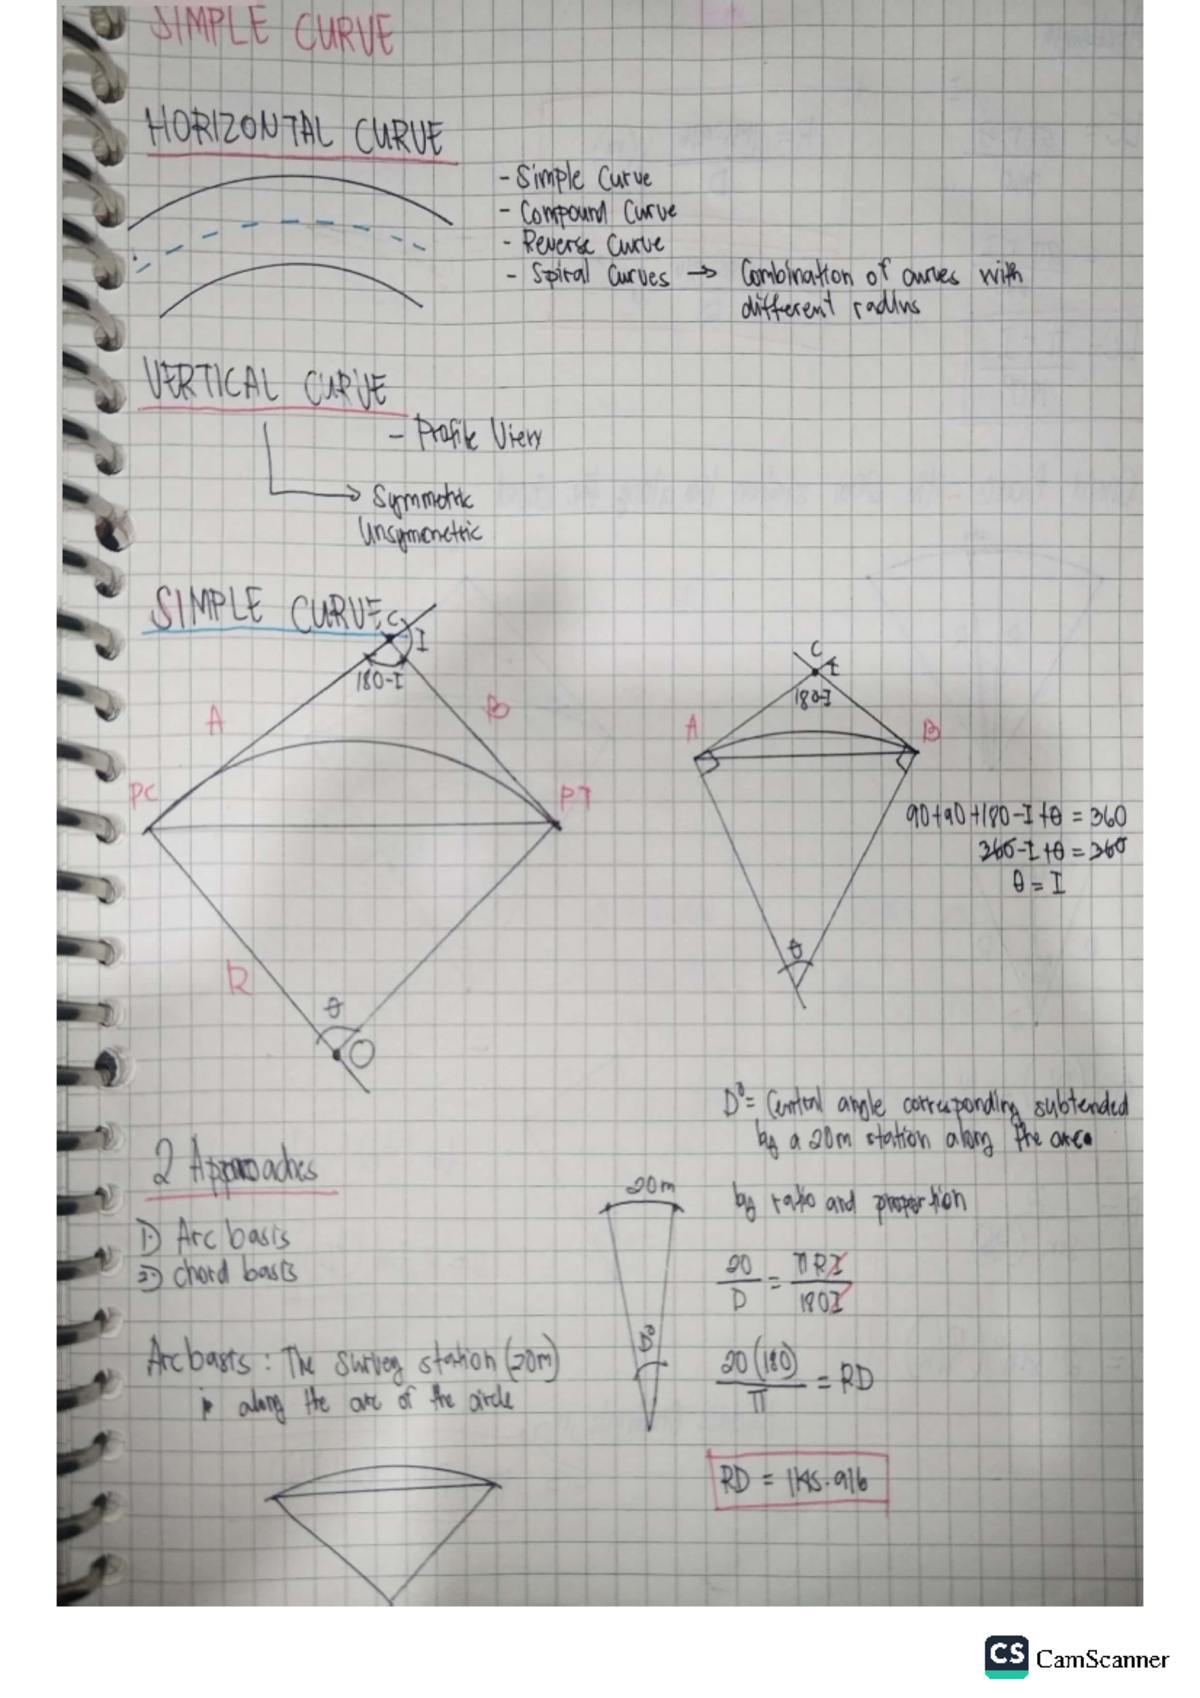 SIMPLE CURVE
HORIZONTAL CURVE
- Simple Curve
- Compound Curve
- Reverse Curve
- Spiral Curves → Combination of curves with
different radius
VERTICAL CURVE
- Profile View
Symmetric
Unsymmetric
SIMPLE CURVE
C
I
180-I
A
B
PC
PT
R
θ
O
C
I
180-I
A
B
θ
90+90+180-I+θ = 360
360-I+θ = 360
θ = I
D° = Central angle corresponding subtended
by a 20m station along the arc
2 Approaches
1) Arc basis
2) chord basis
20m
D°
by ratio and proportion
20/D = πRI/180I
20(180)/π = RD
RD = 1145.916
Arc basis : The survey station (20m)
is along the arc of the circle
CS CamScanner